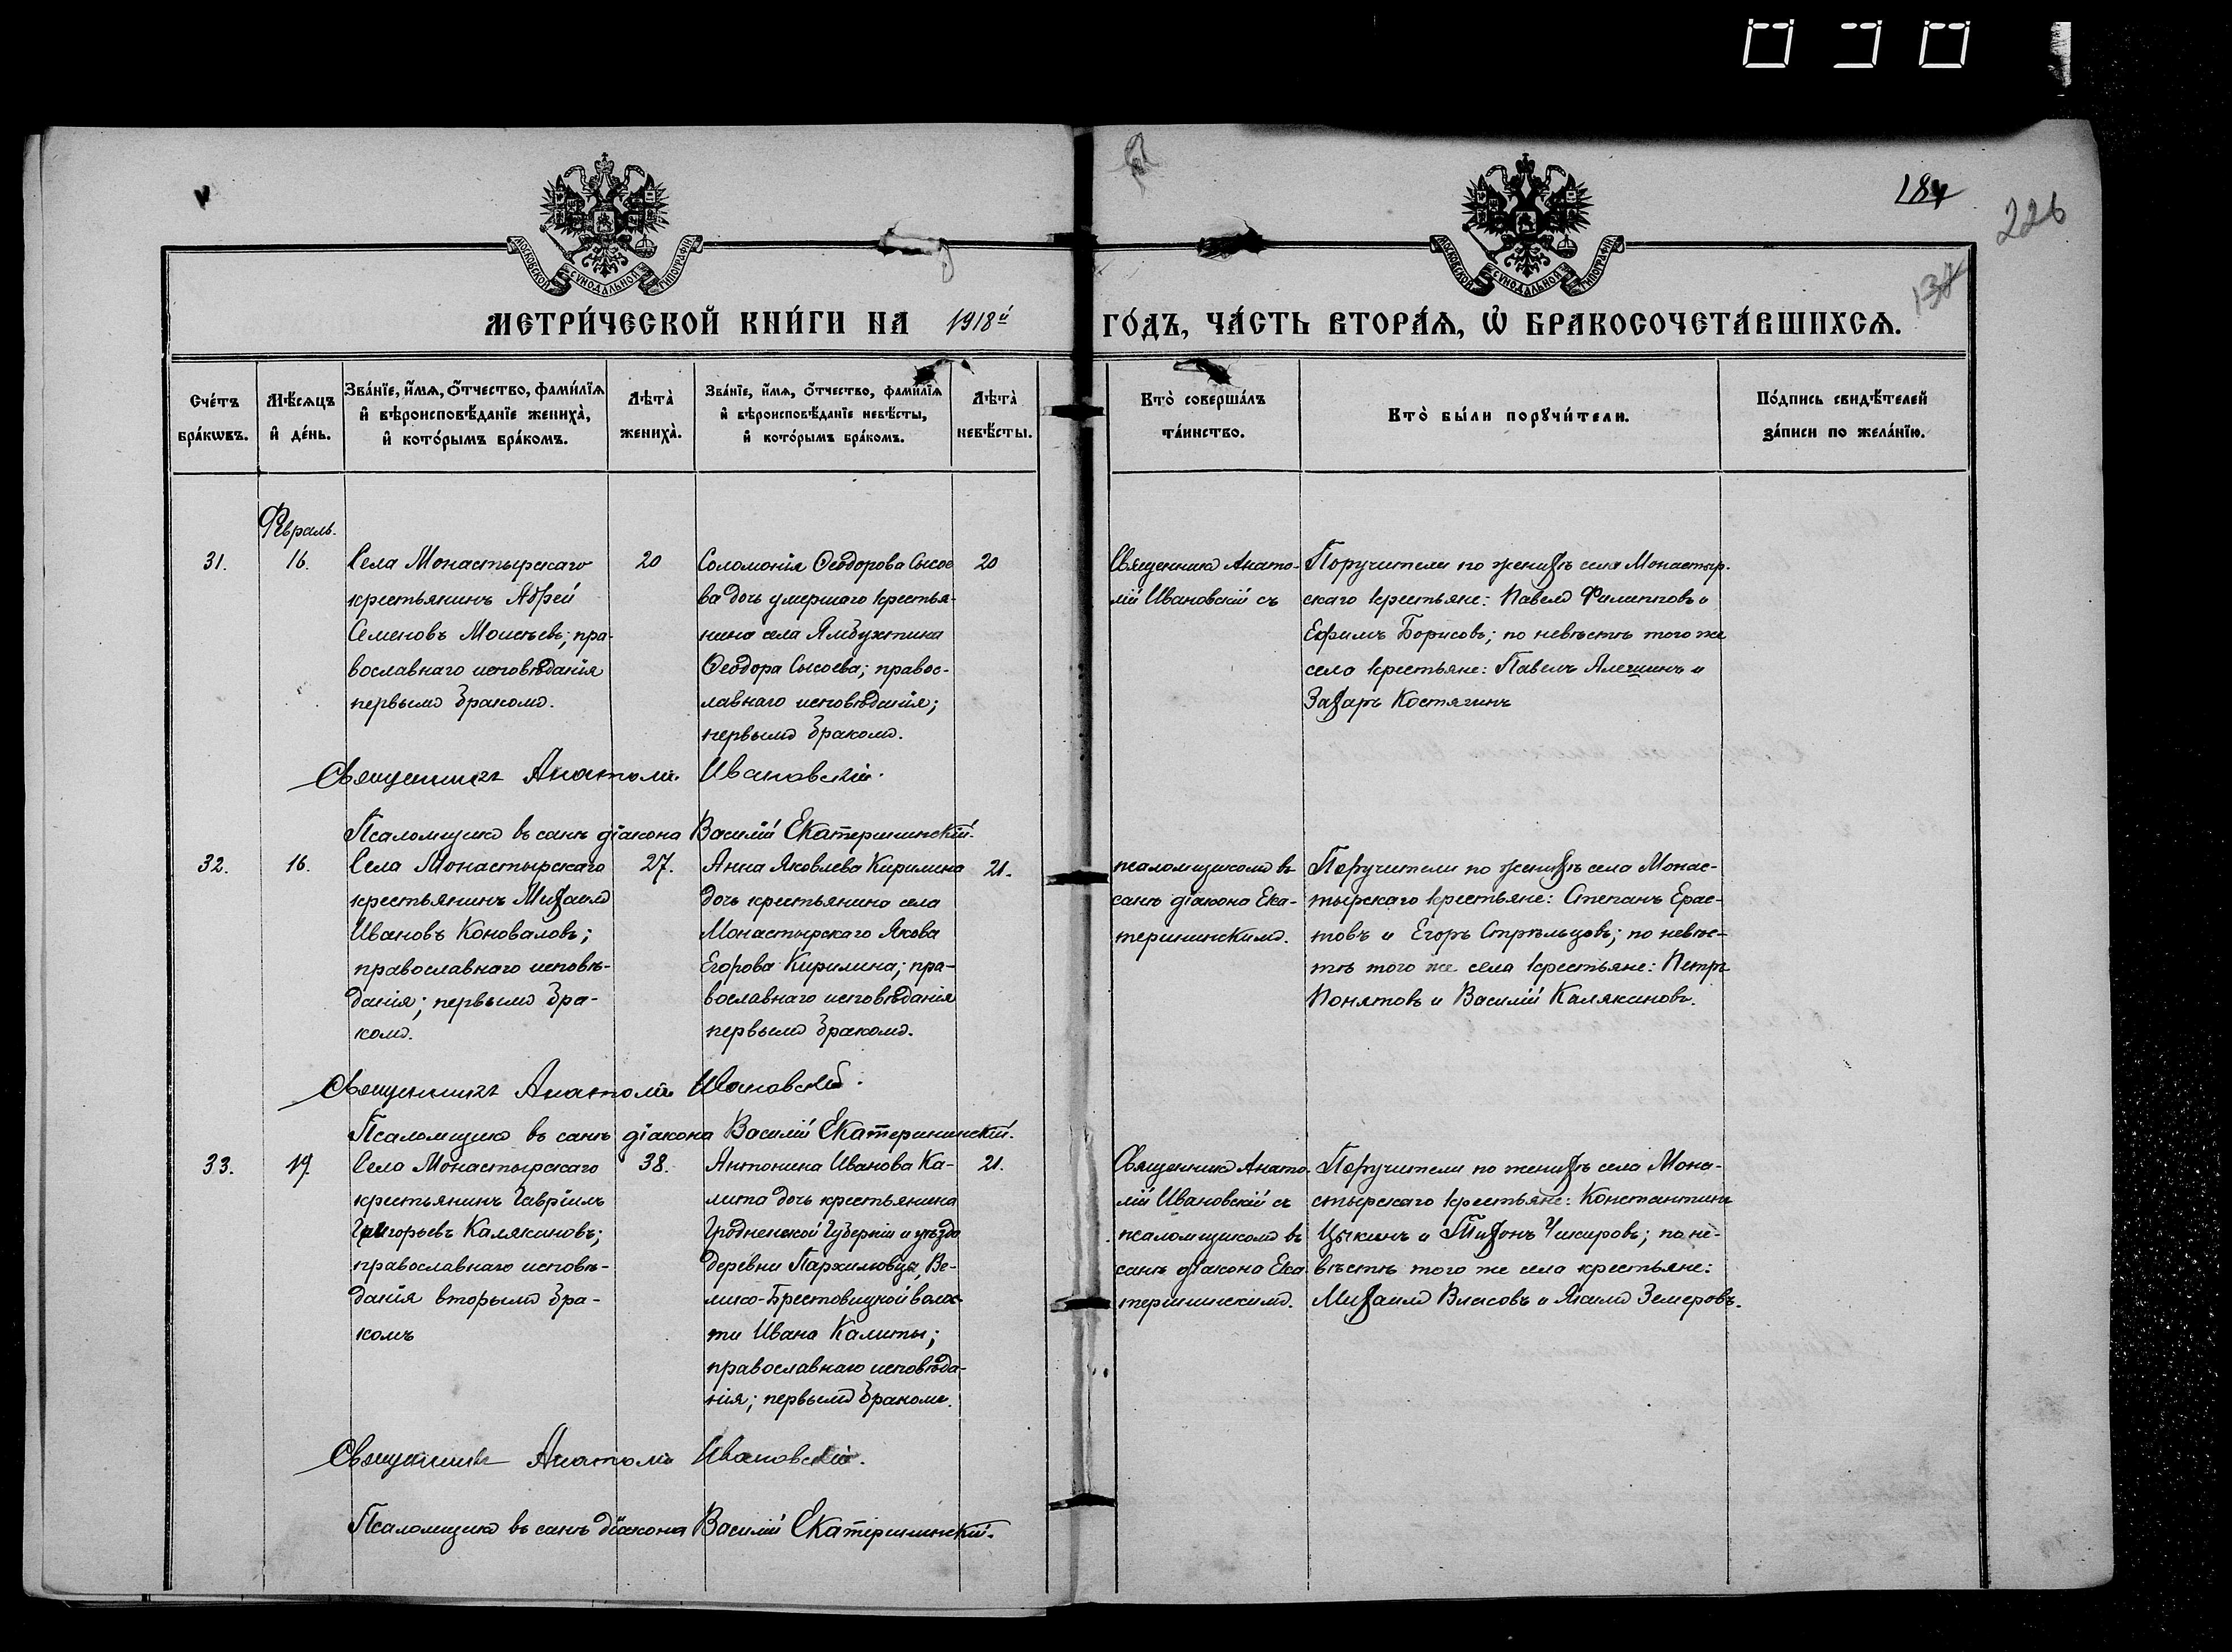 184
226
138
МОСКОВСКОЙ СѴНОДАЛЬНОЙ ТИПОГРАФІИ
МОСКОВСКОЙ СѴНОДАЛЬНОЙ ТИПОГРАФІИ
МЕТРИ́ЧЕСКОЙ КНИ́ГИ НА 1918й ГО́ДЪ, ЧА́СТЬ ВТОРА́Ѧ, Ѽ БРАКОСОЧЕТА́ВШИХСѦ.
Сче́тъ бра́кѡвъ.
Мѣ́сѧцъ и҆ де́нь.
Зва́нїе, и҆́мѧ, ѻ҆́тчество, фами́лїѧ и҆ вѣроисповѣ́данїе жениха̀, и҆ кото́рымъ бра́комъ.
Лѣта̀ жениха̀.
Зва́нїе, и҆́мѧ, ѻ҆́тчество, фами́лїѧ и҆ вѣроисповѣ́данїе невѣ́сты, и҆ кото́рымъ бра́комъ.
Лѣта̀ невѣ́сты.
Кто̀ соверша́лъ та́инство.
Кто̀ бы́ли порꙋчи́тели.
По́дпись свидѣ́телей за́писи по жела́нїю.
Февраль.
31.
16.
Села Монастырскаго
крестьянинъ Абрей
Семеновъ Моисѣевъ; пра-
вославнаго исповѣданія
первымъ бракомъ.
20
Соломонія Ѳеодорова Сысое
ва дочь умершаго крестья-
нина села Ямбухтина
Ѳеодора Сысоева; правос-
лавнаго исповѣданія;
первымъ бракомъ.
20
Священникъ Анато-
лій Ивановскій съ
Поручители по женихѣ села Монастыр-
скаго крестьяне: Павелъ Филипповъ и
Ефимъ Борисовъ; по невѣстѣ того же
села крестьяне: Павелъ Алешинъ и
Захаръ Костягинъ
Священникъ Анатолій Ивановскій.
Псаломщикъ въ санѣ діакона Василій Екатерининскій.
32.
16.
Села Монастырскаго
крестьянинъ Михаилъ
Ивановъ Коноваловъ;
православнаго исповѣ-
данія; первымъ бра-
комъ.
27.
Анна Яковлева Кирилина
дочь крестьянина села
Монастырскаго Якова
Егорова Кирилина; пра-
вославнаго исповѣданія
первымъ бракомъ.
21.
псаломщикомъ въ
санѣ діакона Ека-
терининскимъ.
Поручители по женихѣ села Монас-
тырскаго крестьяне: Степанъ Ерас-
товъ и Егоръ Стрѣльцовъ; по невѣс-
тѣ того же села крестьяне: Петръ
Понятовъ и Василій Калякиновъ.
Священникъ Анатолій Ивановскій.
Псаломщикъ въ санѣ діакона Василій Екатерининскій.
33.
17.
Села Монастырскаго
крестьянинъ Гавріилъ
Григорьевъ Калякиновъ;
православнаго исповѣ-
данія вторымъ бра-
комъ
38.
Антонина Иванова Ка-
лита дочь крестьянина
Гродненской Губерніи и уѣзда
деревни Пархимовца, Ве-
лико-Брестовицкой волос-
ти Ивана Калиты;
православнаго исповѣда-
нія; первымъ бракомъ.
21.
Священникъ Анато-
лій Ивановскій съ
псаломщикомъ въ
санѣ діакона Ека
терининскимъ.
Поручители по женихѣ села Мона-
стырскаго крестьяне: Константинъ
Цыкинъ и Тихонъ Чикировъ; по не-
вѣстѣ того же села крестьяне:
Михаилъ Власовъ и Якимъ Земеровъ.
Священникъ Анатолій Ивановскій.
Псаломщикъ въ санѣ діакона Василій Екатерининскій.